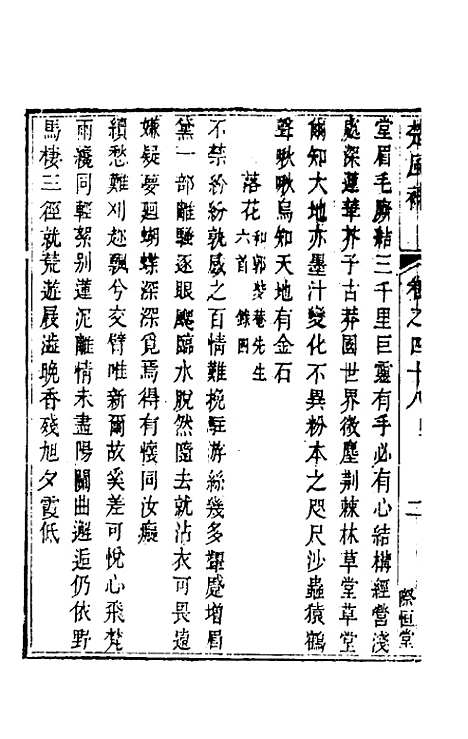 楚風補
卷之四十八
二
際恒堂
堂眉毛廝結三千里巨靈有手必有心結構經營淺
處深蓮華芥子古莽國世界微塵荆棘林草堂草堂
爾知大地亦墨汁變化不異粉本之咫尺沙蟲猿鶴
聲啾啾烏知天地有金石
落花和郭些菴先生六首錄四
不禁紛紛孰慼之百情難挽駐游絲幾多顰蹙增眉
黛一部離騷逐眼颸臨水脫然隨去就沾衣可畏遠
嫌疑夢迴蝴蝶深深覓焉得有懷同汝癡
續愁難刈趂飄兮交臂唯新爾故奚差可悅心飛梵
雨纔同輕絮别蓮泥離情未盡陽關曲邂逅仍依野
馬棲三徑就荒遊屐溢晚香殘旭夕霞低